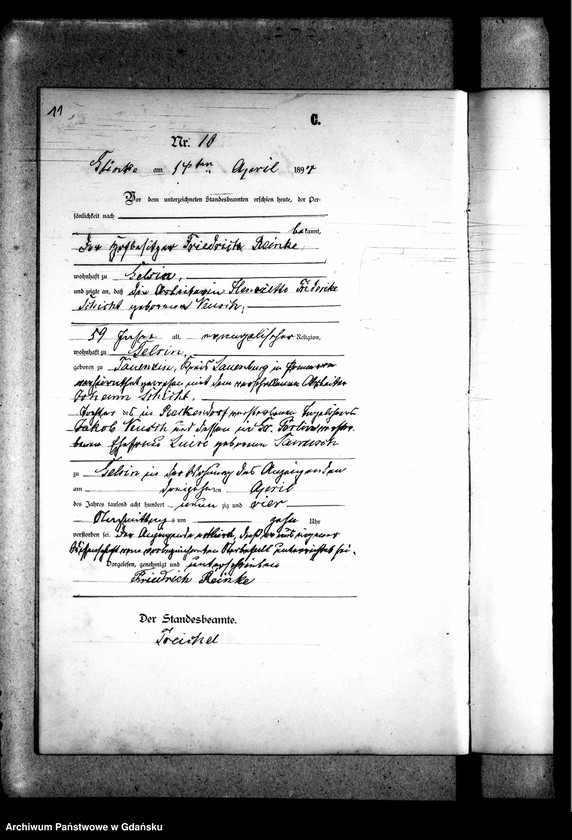 11
C.
Nr. 10
am 14ten April 1894
Vor dem unterzeichneten Standesbeamten erschien heute, der Per-
sönlichkeit nach
bekannt,
der Hofbesitzer Friedrich Reinke,
wohnhaft zu Gelsin,
und zeigte an, daß die Arbeiterin Henriette Friederike
Schicht geborene
59 Jahre alt, evangelischer Religion,
wohnhaft zu Gelsin,
geboren zu Tauenzin, Kreis Lauenburg in Pommern
verheirathet gewesen mit dem verstorbenen Arbeiter
Johann Schicht,
Tochter des in verstorbenen
Jakob und dessen in Gr.
Ehefrau Luise geborenen
zu Gelsin in der Wohnung des Anzeigenden
am dreizehnten April
des Jahres tausend acht hundert neunzig und vier
Vormittags um zehn Uhr
verstorben sei. Der Anzeigende erklärte, daß er aus eigener
Wissenschaft von unterrichtet sei.
Vorgelesen, genehmigt und unterschrieben
Friedrich Reinke
Der Standesbeamte.
Treichel
Archiwum Państwowe w Gdańsku